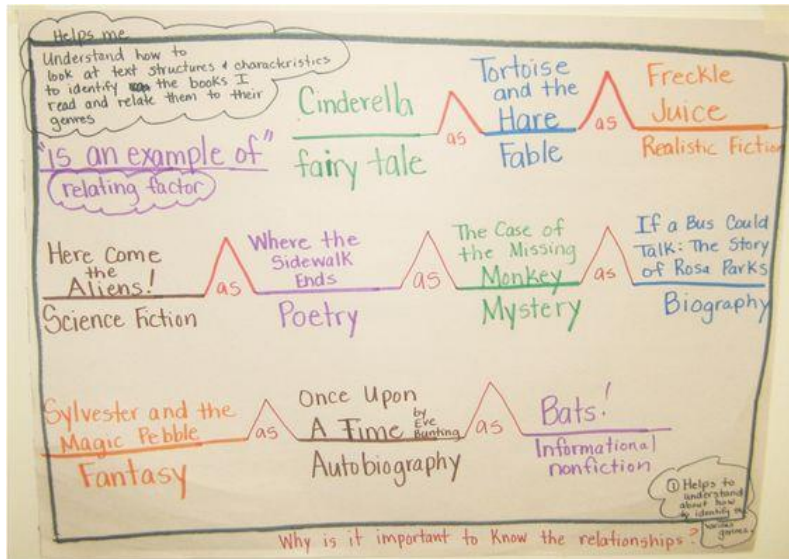 Helps me
Understand how to
look at text structures & characteristics
to identify the books I
read and relate them to their
genres
"is an example of"
relating factor
Cinderella
fairy tale
as
Tortoise
and the
Hare
Fable
as
Freckle
Juice
Realistic Fiction
Here Come
the
Aliens!
Science Fiction
as
Where the
Sidewalk
Ends
Poetry
as
The Case of
the Missing
Monkey
Mystery
as
If a Bus Could
Talk: The Story
of Rosa Parks
Biography
Sylvester and the
Magic Pebble
Fantasy
as
Once Upon
A Time by Eve Bunting
Autobiography
as
Bats!
Informational
nonfiction
① Helps to
understand
about how
to identify
various
genres.
Why is it important to know the relationships?